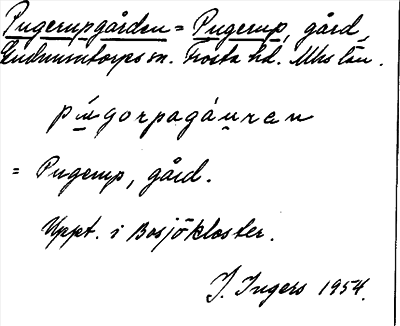 Pugerupgården = Pugerup, gård,
Gudmuntorps sn. Frosta hd. Mhs län.
púgorpagáuren
= Pugerup, gård.
Uppt. i Bosjökloster.
J. Ingers 1954.